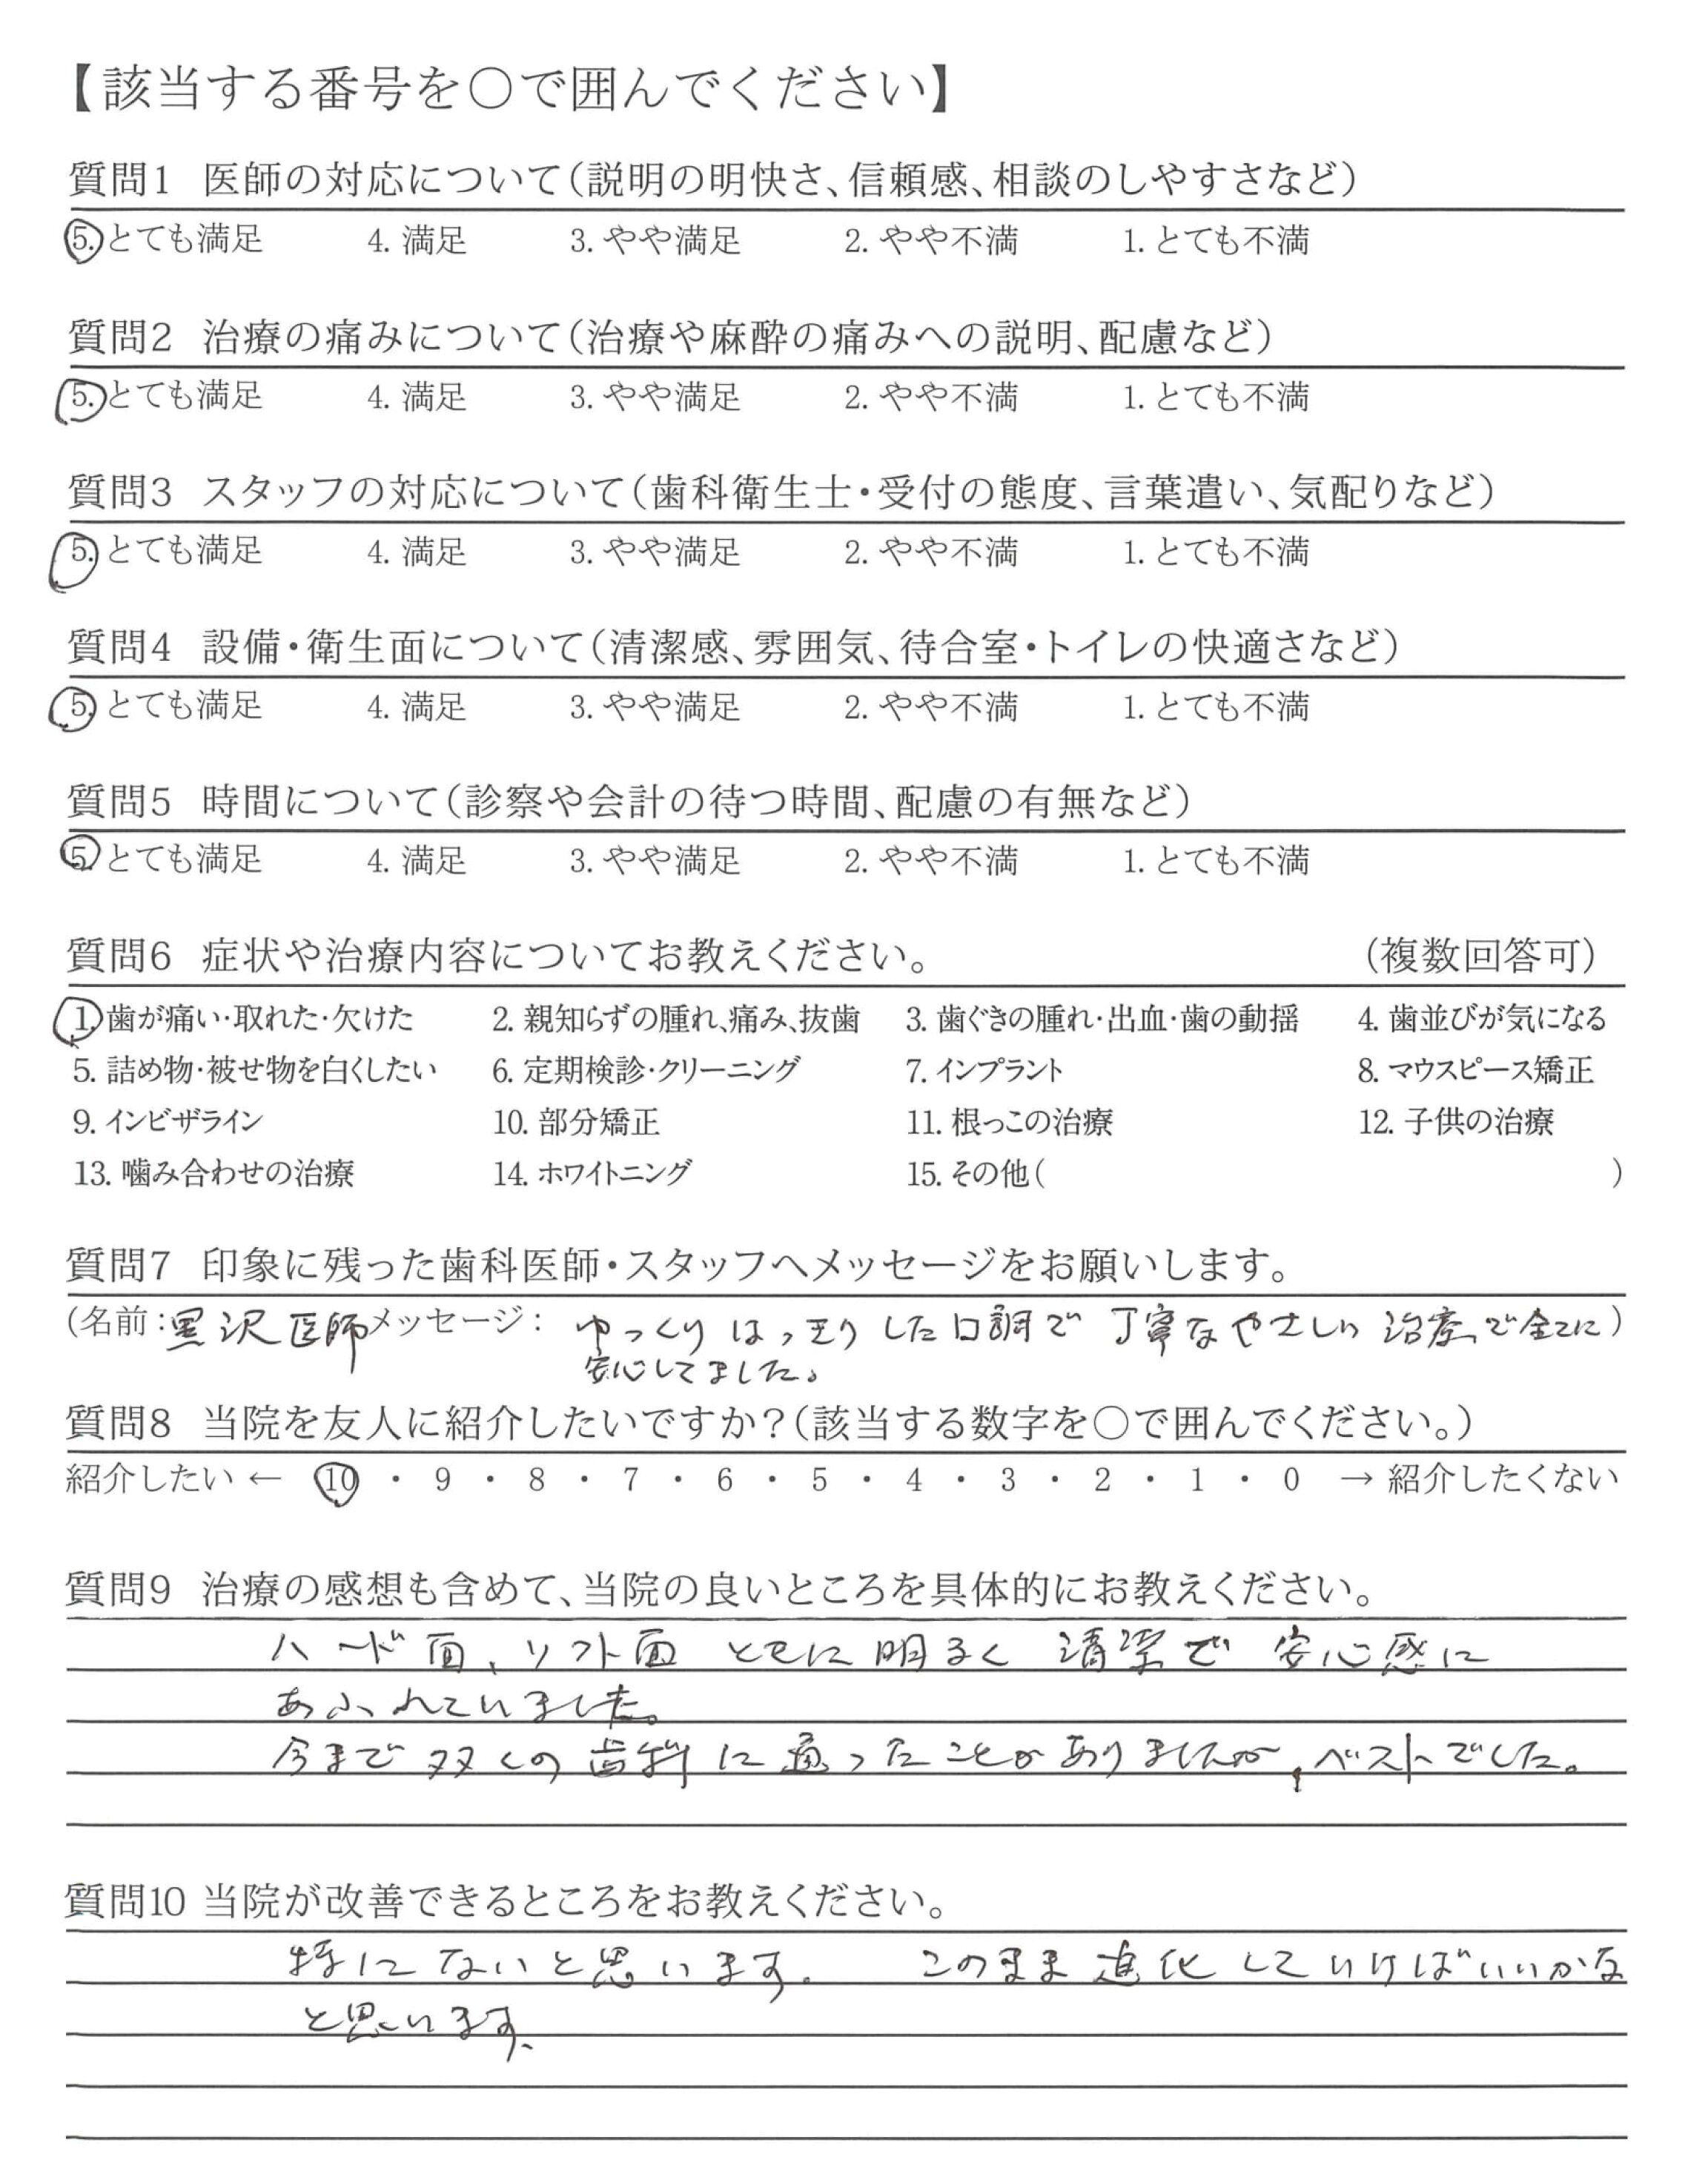 【該当する番号を○で囲んでください】
質問1 医師の対応について(説明の明快さ、信頼感、相談のしやすさなど)
5. とても満足 4. 満足 3. やや満足 2. やや不満 1. とても不満
質問2 治療の痛みについて(治療や麻酔の痛みへの説明、配慮など)
5. とても満足 4. 満足 3. やや満足 2. やや不満 1. とても不満
質問3 スタッフの対応について(歯科衛生士・受付の態度、言葉遣い、気配りなど)
5. とても満足 4. 満足 3. やや満足 2. やや不満 1. とても不満
質問4 設備・衛生面について(清潔感、雰囲気、待合室・トイレの快適さなど)
5. とても満足 4. 満足 3. やや満足 2. やや不満 1. とても不満
質問5 時間について(診察や会計の待つ時間、配慮の有無など)
5. とても満足 4. 満足 3. やや満足 2. やや不満 1. とても不満
質問6 症状や治療内容についてお教えください。 (複数回答可)
1. 歯が痛い・取れた・欠けた 2. 親知らずの腫れ、痛み、抜歯 3. 歯ぐきの腫れ・出血・歯の動揺 4. 歯並びが気になる
5. 詰め物・被せ物を白くしたい 6. 定期検診・クリーニング 7. インプラント 8. マウスピース矯正
9. インビザライン 10. 部分矯正 11. 根っこの治療 12. 子供の治療
13. 噛み合わせの治療 14. ホワイトニング 15. その他( )
質問7 印象に残った歯科医師・スタッフへメッセージをお願いします。
(名前:黒沢医師 メッセージ: ゆっくりはっきりした口調で丁寧なやさしい治療で全てに)
安心してました。
質問8 当院を友人に紹介したいですか?(該当する数字を○で囲んでください。)
紹介したい ← 10 ・ 9 ・ 8 ・ 7 ・ 6 ・ 5 ・ 4 ・ 3 ・ 2 ・ 1 ・ 0 → 紹介したくない
質問9 治療の感想も含めて、当院の良いところを具体的にお教えください。
ハード面、ソフト面ともに明るく清潔で安心感に
あふれていました。
今まで多くの歯科に通ったことがありましたが、ベストでした。
質問10 当院が改善できるところをお教えください。
特にないと思います。 このまま進化していけばいいかな
と思います。